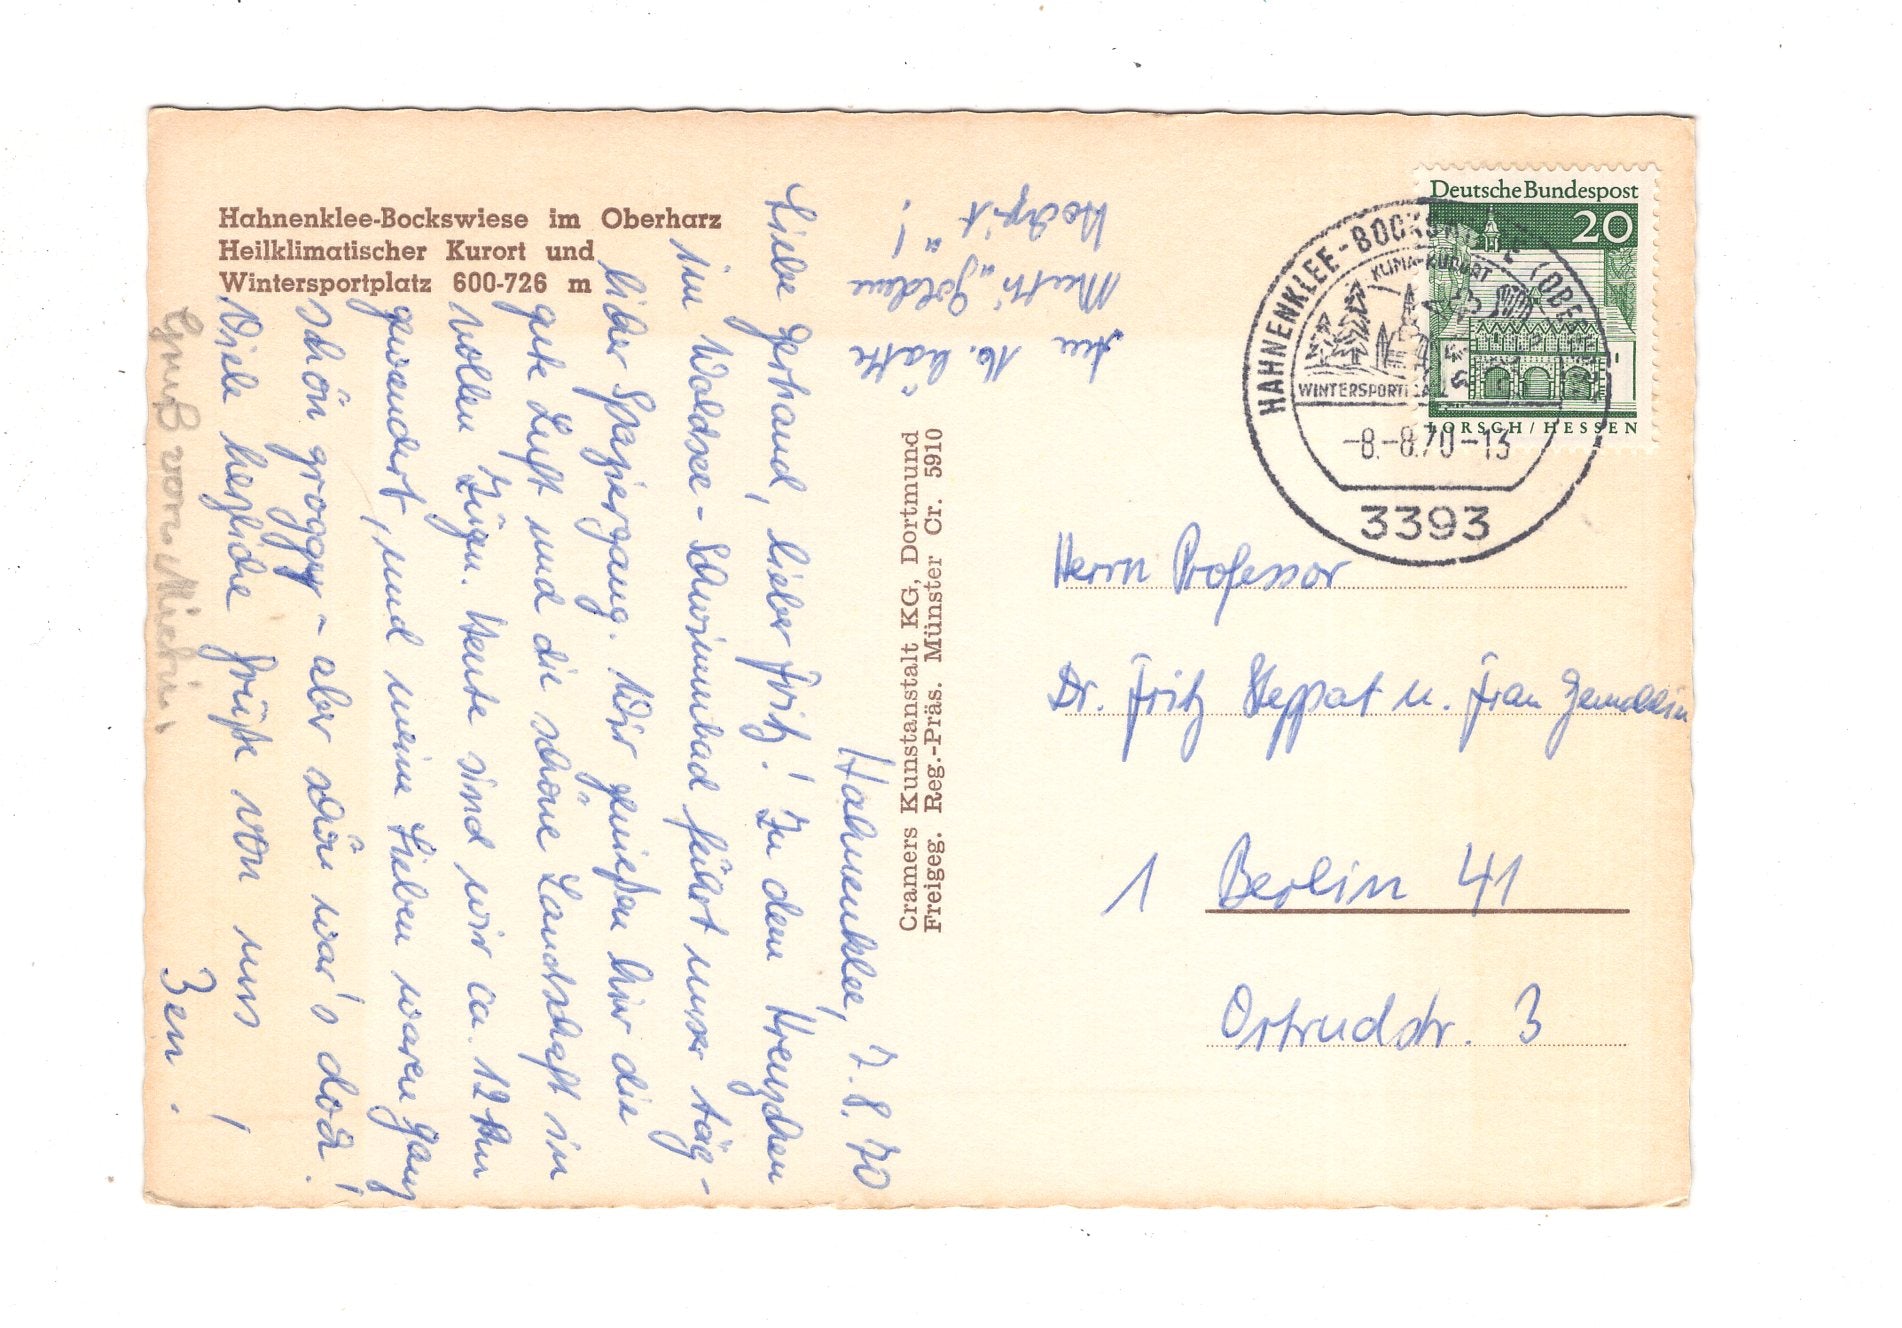 Hahnenklee-Bockswiese im Oberharz
Heilklimatischer Kurort und
Wintersportplatz 600-726 m
Hahnenklee, 7.8.70
Liebe Gerhand, lieber Fritz! Zu den Kreuzchen
im Waldsee-Schwimmbad führt unser täg-
licher Spaziergang. Wir genießen hier die
gute Luft und die schöne Landschaft in
vollen Zügen. Heute sind wir ca. 12 km
gewandert, und meine Lieben waren ganz
schön groggy - aber schön war's doch!
Viele herzliche Grüße von uns
3en!
Gruß von
Am 16. hätte
"Goldene
Hochzeit"!
Cramers Kunstanstalt KG, Dortmund
Freigeg. Reg.-Präs. Münster Cr. 5910
Deutsche Bundespost
20
LORSCH / HESSEN
HAHNENKLEE-BOCKSWIESE (OBERHARZ)
KLIMA-KURORT
WINTERSPORTPLATZ
-8.-8.70-13
3393
Herrn Professor
Dr. Fritz Steppat u. Frau Gemahlin
1 Berlin 41
Ortrudstr. 3